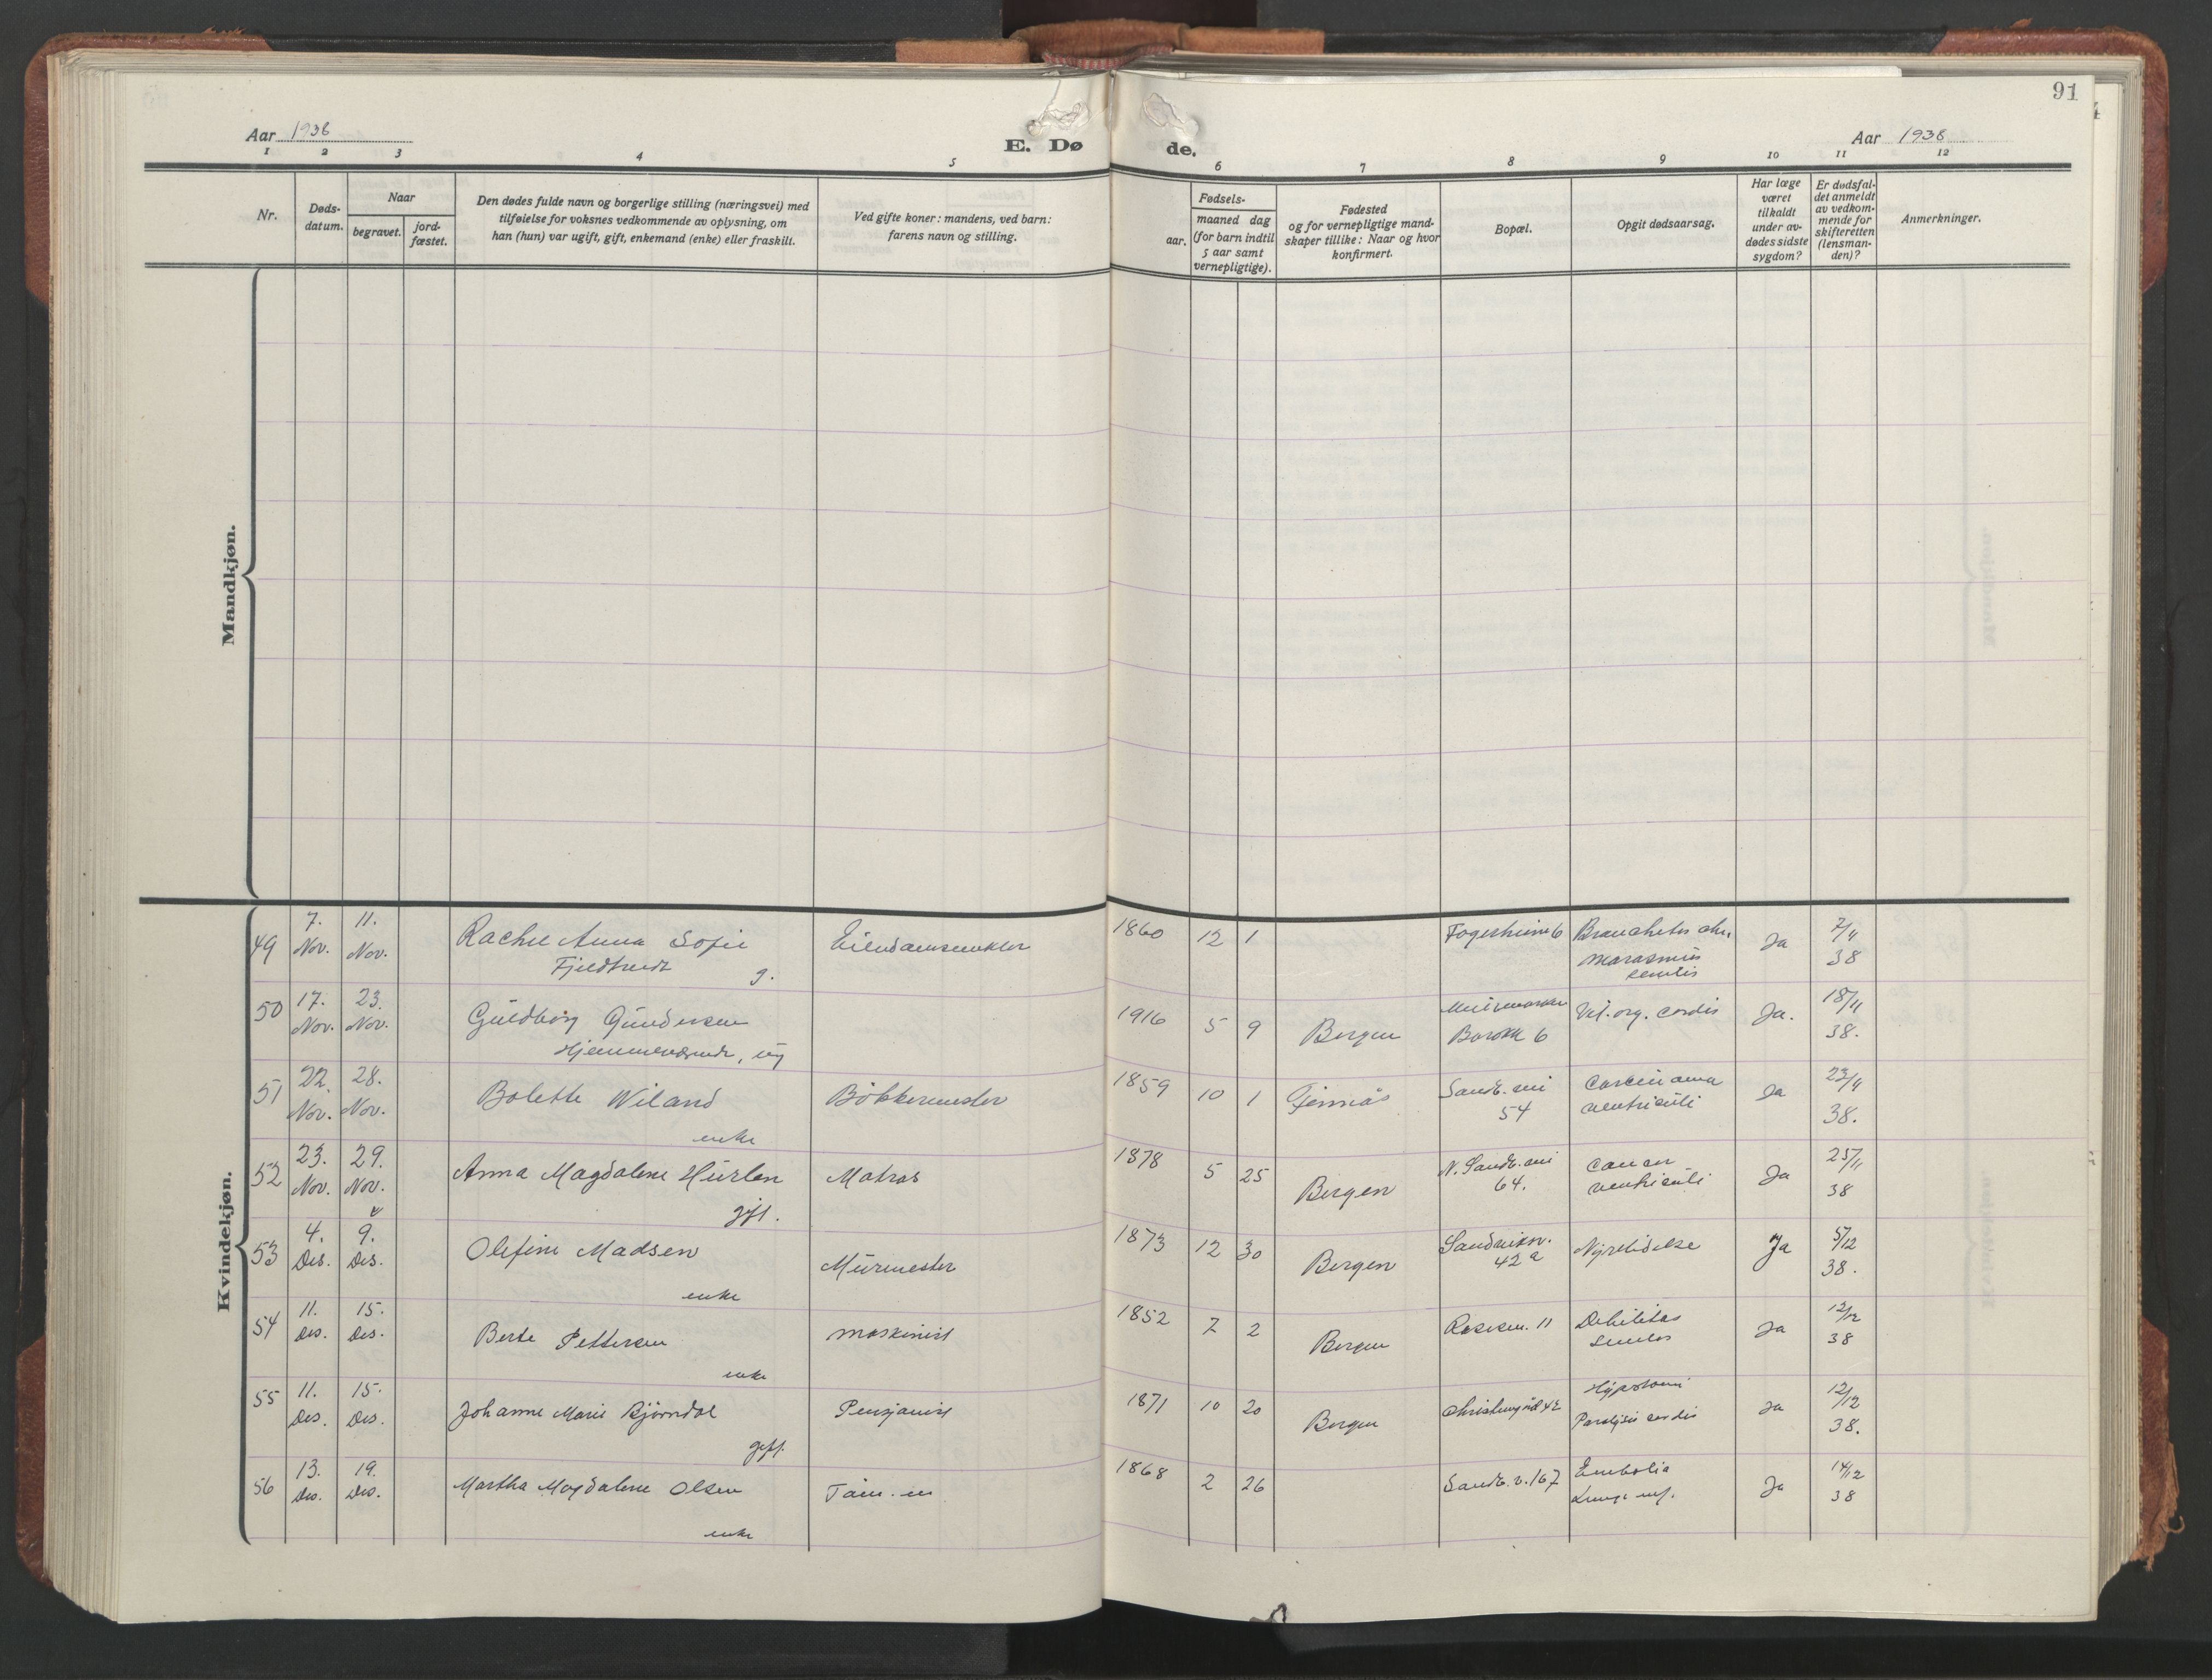 91
Aar 1938
E. Dø de.
Aar 1938
1 2 3 4 5 6 7 8 9 10 11 12
Nr.
Døds-
datum.
Naar
begravet.
jord-
fæstet.
Den dødes fulde navn og borgerlige stilling (næringsvei) med
tilføielse for voksnes vedkommende av oplysning, om
han (hun) var ugift, gift, enkemand (enke) eller fraskilt.
Ved gifte koner: mandens, ved barn:
farens navn og stilling.
Fødsels-
aar.
maaned dag
(for barn indtil
5 aar samt
vernepligtige).
Fødested
og for vernepligtige mand-
skaper tillike: Naar og hvor
konfirmert.
Bopæl.
Opgit dødsaarsag.
Har læge
været
tilkaldt
under av-
dødes sidste
sygdom?
Er dødsfal-
det anmeldt
av vedkom-
mende for
skifteretten
(lensman-
den)?
Anmerkninger.
Mandkjøn.
Kvindekjøn.
49 7. Nov. 11. Nov. Anna Sofie
g.
1860 12 1
marasmus
senilis
Ja 38
50 17. Nov. 23. Nov. Guldborg Gundersen
Hjemmeværende, ug
1916 5 9 Bergen 6 Vit. org. cordis Ja. 18/11 38.
51 22. Nov. 28. Nov. Bolette Wiland
enke
Bøkkermester
1859 10 1 54 carcinoma
ventriculi
Ja 23/11 38.
52 23. Nov. 29. Nov. Anna Magdalene Hurlen
gft.
Matros
1878 5 25 Bergen 64. cancer
ventriculi
Ja 25/11 38
53 4. Des. 9. Des. Olefine Madsen
enke
Murmester
1873 12 30 Bergen Sandviksv.
42 a
Nyrelidelse Ja 5/12 38.
54 11. Des. 15. Des. Berte Pettersen
enke
maskinist
1852 7 2 Bergen 11 Debilitas
Ja 12/12 38
55 11. Des. 15. Des. Johanne Marie Bjørndal
gift.
Pensjonist
1871 10 20 Bergen
cordis
Ja 12/12 38.
56 13. Des. 19. Des. Martha Magdalene Olsen
enke
1868 2 26 Sandv. v. 167 Embolia
Ja 14/12 38